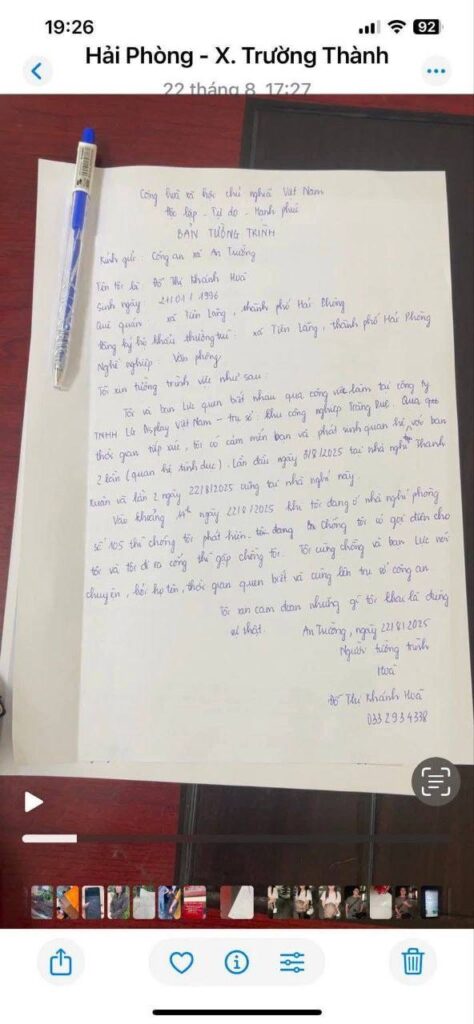 19:26
92
Hải Phòng - X. Trường Thành
22 tháng 8, 17:27
Cộng hoà xã hội chủ nghĩa Việt Nam
Độc lập - Tự do - Hạnh phúc
BẢN TƯỜNG TRÌNH
Kính gửi: Công an xã An Trường
Tên tôi là Đỗ Thị Khánh Hoà
Sinh ngày: 21/01/1996
Quê quán: xã Tiên Lãng, thành phố Hải Phòng
Đăng ký hộ khẩu thường trú: xã Tiên Lãng, thành phố Hải Phòng
Nghề nghiệp: Văn phòng
Tôi xin tường trình việc như sau:
Tôi và bạn Lực quen biết nhau qua công việc làm tại công ty
TNHH LG Display Việt Nam - trụ sở: khu công nghiệp Tràng Duệ. Qua
thời gian tiếp xúc, tôi có cảm mến bạn và phát sinh quan hệ với bạn
2 lần (quan hệ tình dục). Lần đầu ngày 3/8/2025 tại nhà nghỉ Thanh
Xuân và lần 2 ngày 22/8/2025 cũng tại nhà nghỉ này.
Vào khoảng 14h ngày 22/8/2025 khi tôi đang ở nhà nghỉ phòng
số 105 thì chồng tôi phát hiện. Chồng tôi có gọi điện cho
tôi và tôi đi ra cổng thì gặp chồng tôi. Tôi cùng chồng và bạn Lực nói
chuyện, hỏi họ tên, thời gian quen biết và cùng lên trụ sở công an.
Tôi xin cam đoan những gì tôi khai là đúng
sự thật.
An Trường, ngày 22/8/2025
Người tường trình
Hoà
Đỗ Thị Khánh Hoà
033 2934338